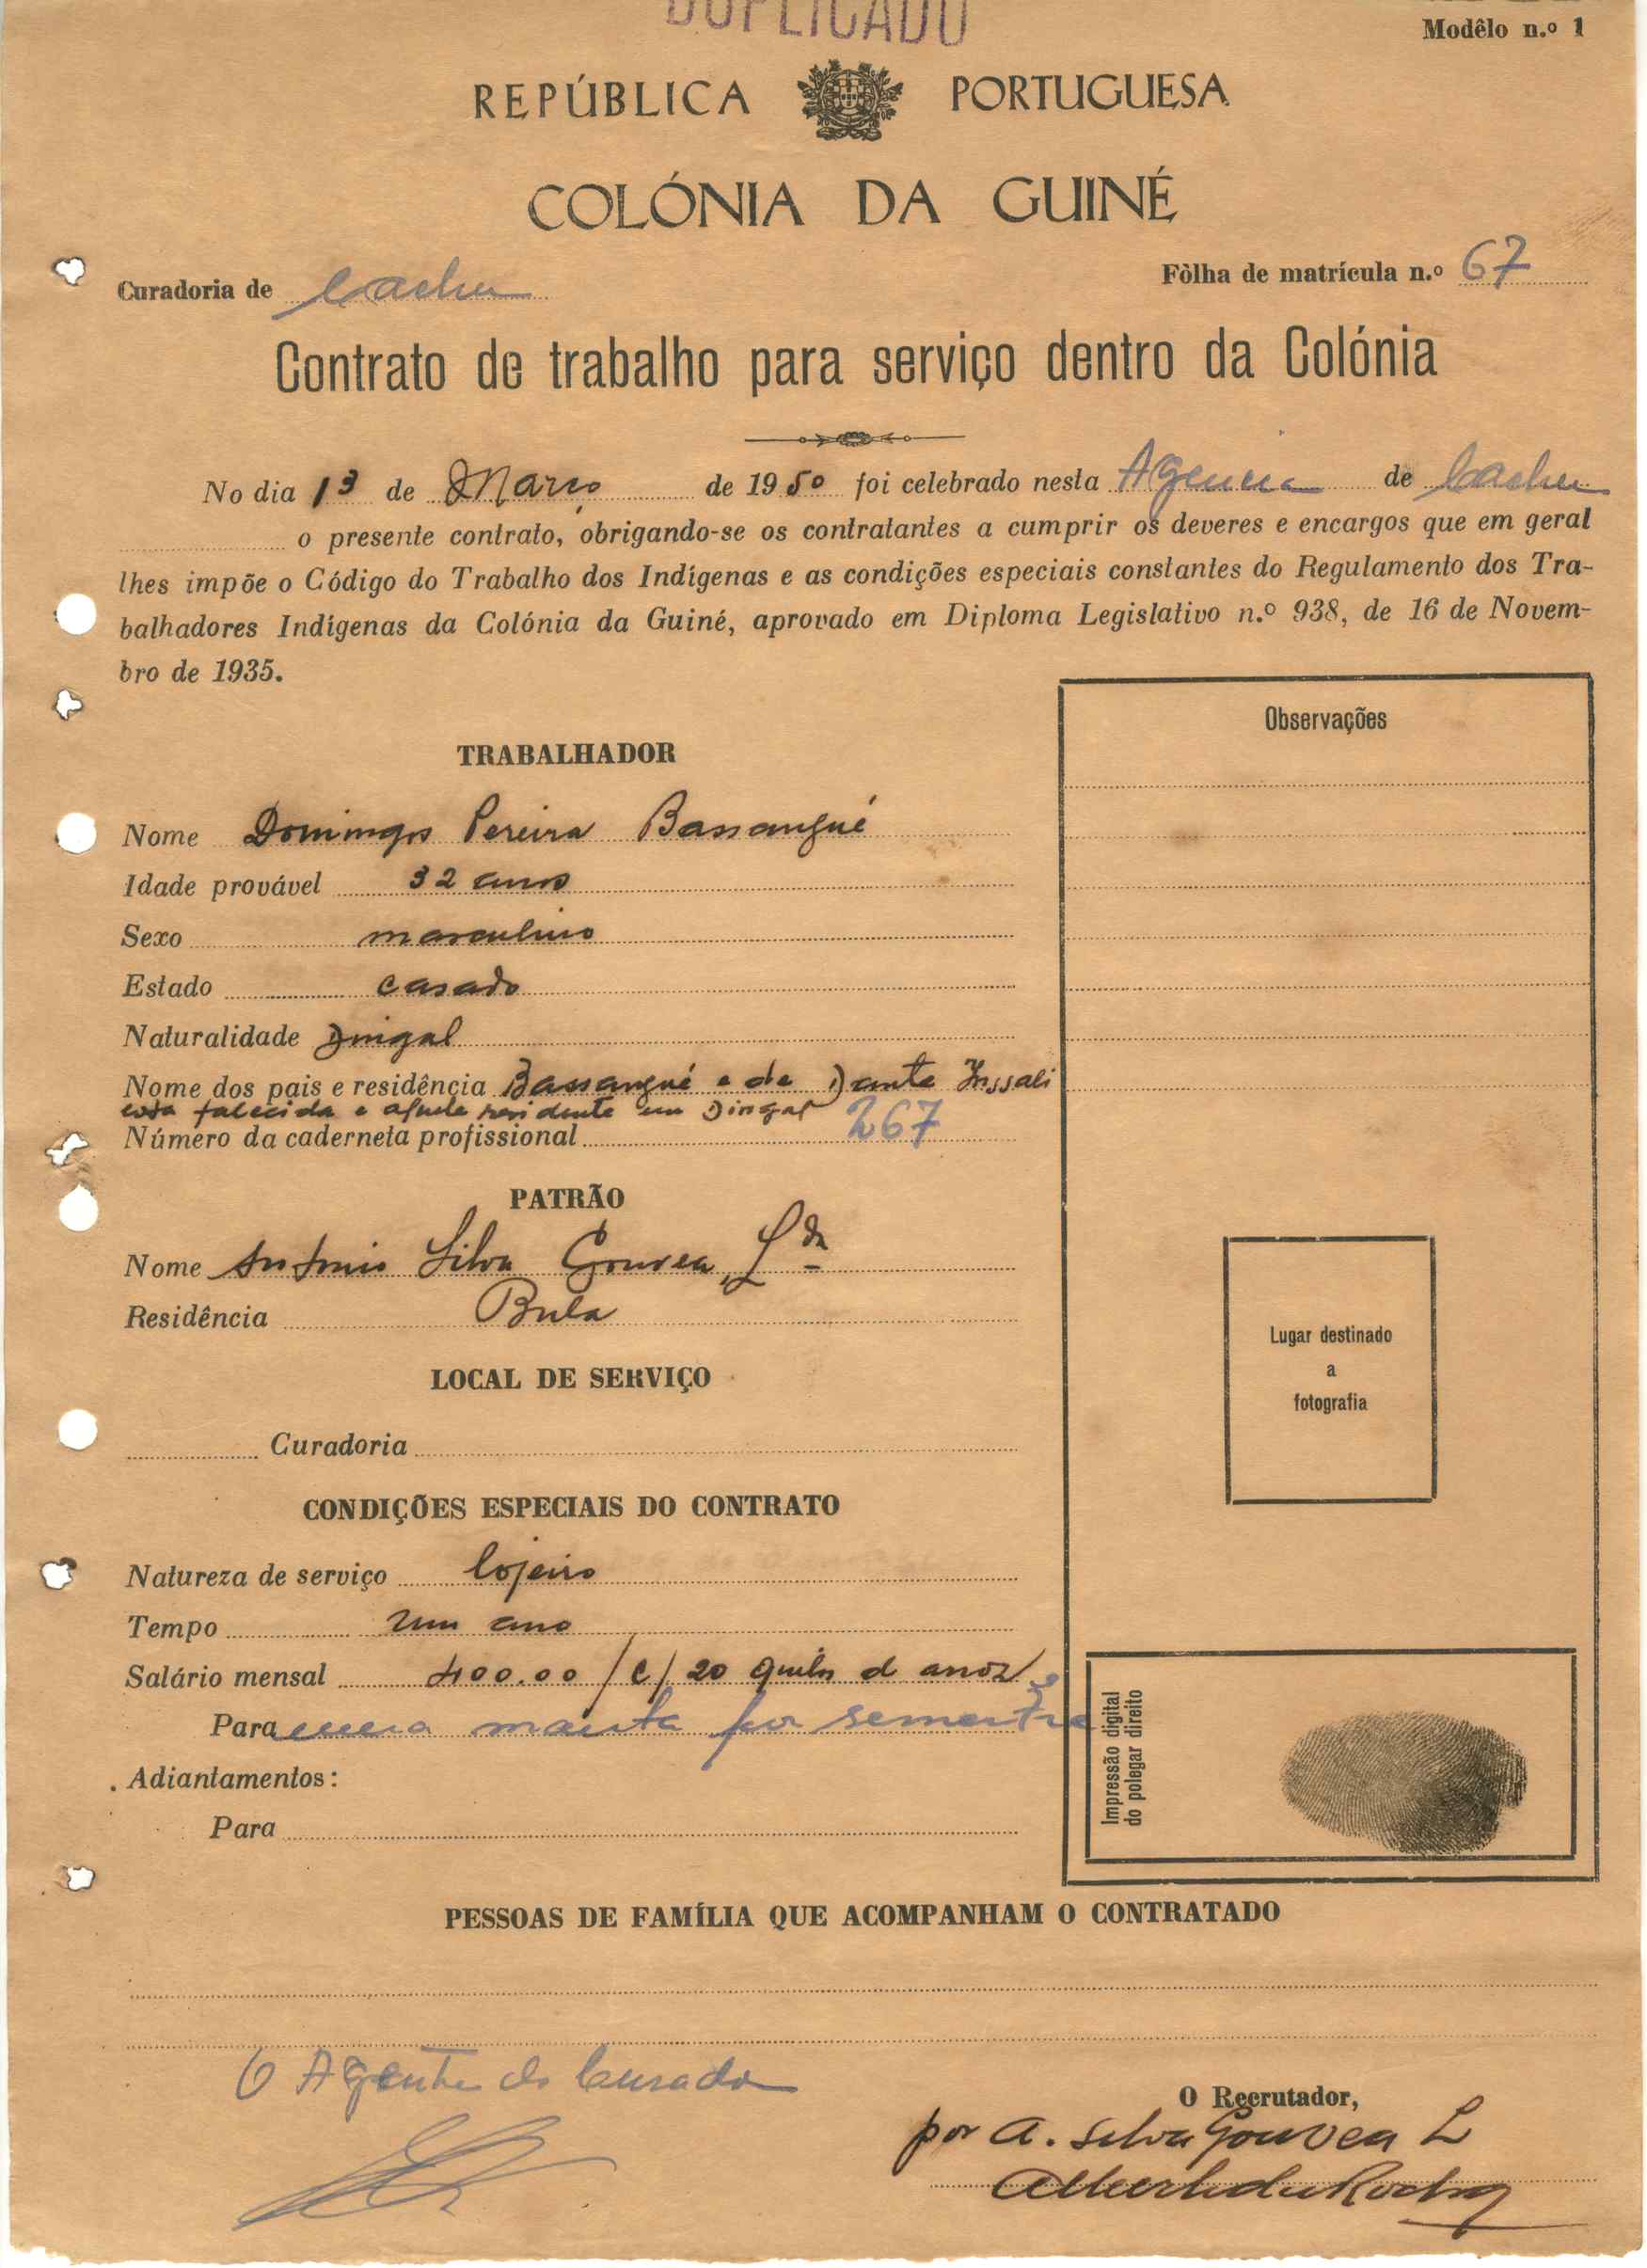 DUPLICADO
Modêlo n.º 1
REPÚBLICA PORTUGUESA
COLÓNIA DA GUINÉ
Curadoria de Cacheu
Fôlha de matrícula n.º 67
Contrato de trabalho para serviço dentro da Colónia
No dia 13 de Março de 1950 foi celebrado nesta Agencia de Cacheu
o presente contrato, obrigando-se os contratantes a cumprir os deveres e encargos que em geral
lhes impõe o Código do Trabalho dos Indígenas e as condições especiais constantes do Regulamento dos Tra-
balhadores Indígenas da Colónia da Guiné, aprovado em Diploma Legislativo n.º 938, de 16 de Novem-
bro de 1935.
Observações
TRABALHADOR
Nome Domingos Pereira Bassangué
Idade provável 32 anos
Sexo masculino
Estado casado
Naturalidade Dingal
Nome dos pais e residência Bassangué e de Dante Inssali
esta falecida e aquele residente em Dingal
Número da caderneta profissional 267
PATRÃO
Nome Antonio Silva Gouvea, Lda
Residência Bula
LOCAL DE SERVIÇO
Curadoria
Lugar destinado
a
fotografia
CONDIÇÕES ESPECIAIS DO CONTRATO
Natureza de serviço lojeiro
Tempo Um ano
Salário mensal 400.00 / c/ 20 quilos d arroz e
Para uma manta por semestre
Adiantamentos:
Para
Impressão digital
do polegar direito
PESSOAS DE FAMÍLIA QUE ACOMPANHAM O CONTRATADO
O Agente do Curador
O Recrutador,
por A. Silva Gouvea L